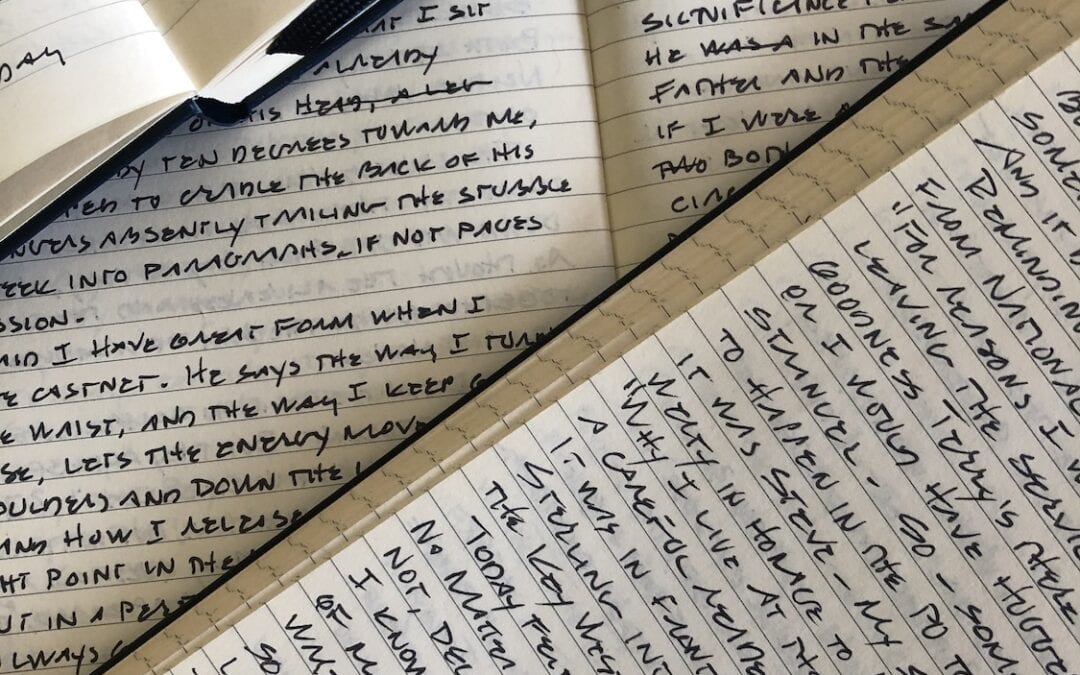 DAY
AT I SIT
ALREADY
HIS HEAD, A LEF
BY TEN DEGREES TOWARD ME,
TED TO CRADLE THE BACK OF HIS
NGERS ABSENTLY TRAILING THE STUBBLE
EEK INTO PARAGRAPHS, IF NOT PAGES
SSION.
AID I HAVE GREAT FORM WHEN I
E CASTNET. HE SAYS THE WAY I TURN
E WAIST, AND THE WAY I KEEP
SE, LETS THE ENERGY MOVE
OULDERS AND DOWN THE
AND HOW I RELEASE
HT POINT IN THE
UT IN A PERF
ALWAYS
SIGNIFICANCE
HE WAS A IN THE SA
FATHER AND THE
IF I WERE
TWO BODI
CIR
BO
SOME
AND IT
REMINDING
FROM NATIONAL
"FOR REASONS I W
LEAVING THE SERVICE
GOODNESS TERRY'S THERE
OR I WOULD HAVE HUGGE
STRANGER. SO - SOM
TO HAPPEN IN THE PO
IT WAS STEVE - MY
WELTY IN HOMAGE TO
"WHY I LIVE AT TH
A CAREFUL REME
IT WAS IN FRONT
STERLING INT
THE KEY WES
TODAY FEE
NO MATTER
NOT, DEL
I KNOW
OF M
WHI
SO